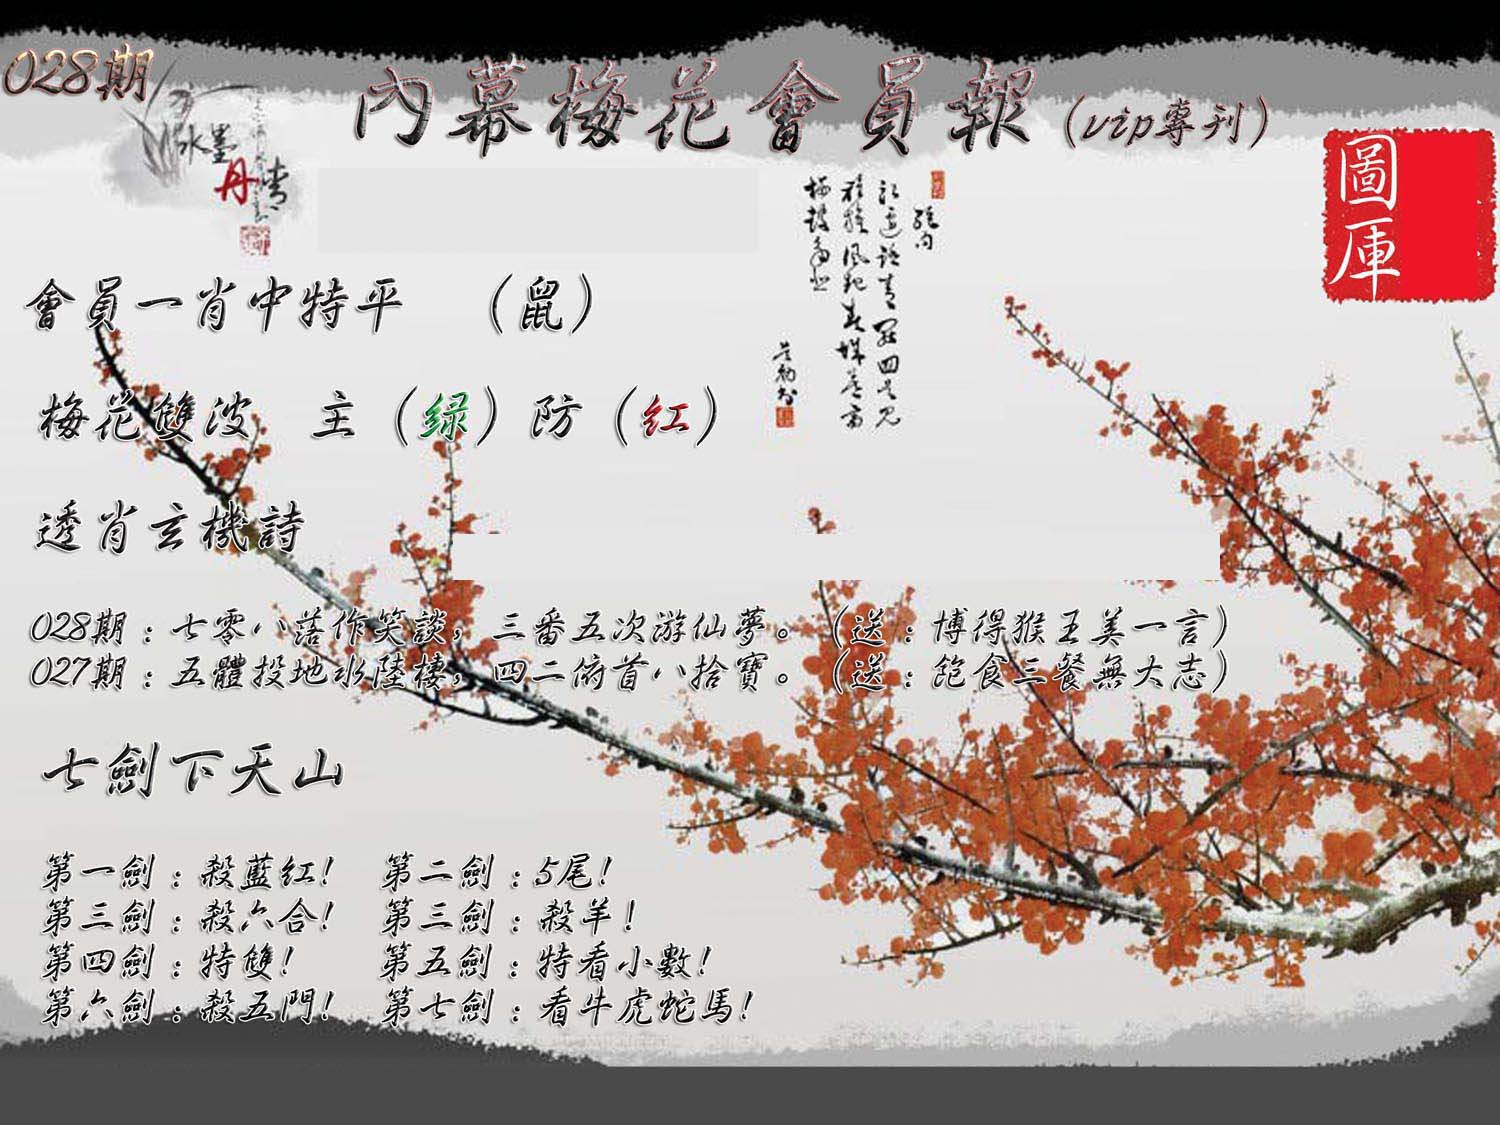 028期
內幕梅花會員報(vip專刊)
水墨
丹青
圖庫
會員一肖中特平 （鼠）
梅花雙波 主（绿）防（红）
透肖玄機詩
028期：七零八落作笑談，三番五次游仙夢。（送：博得猴王美一言）
027期：五體投地水陸棲，四二俯首八拾寶。（送：飽食三餐無大志）
七劍下天山
第一劍：殺藍红！ 第二劍：5尾！
第三劍：殺六合！ 第三劍：殺羊！
第四劍：特雙！ 第五劍：特看小數！
第六劍：殺五門！ 第七劍：看牛虎蛇馬！